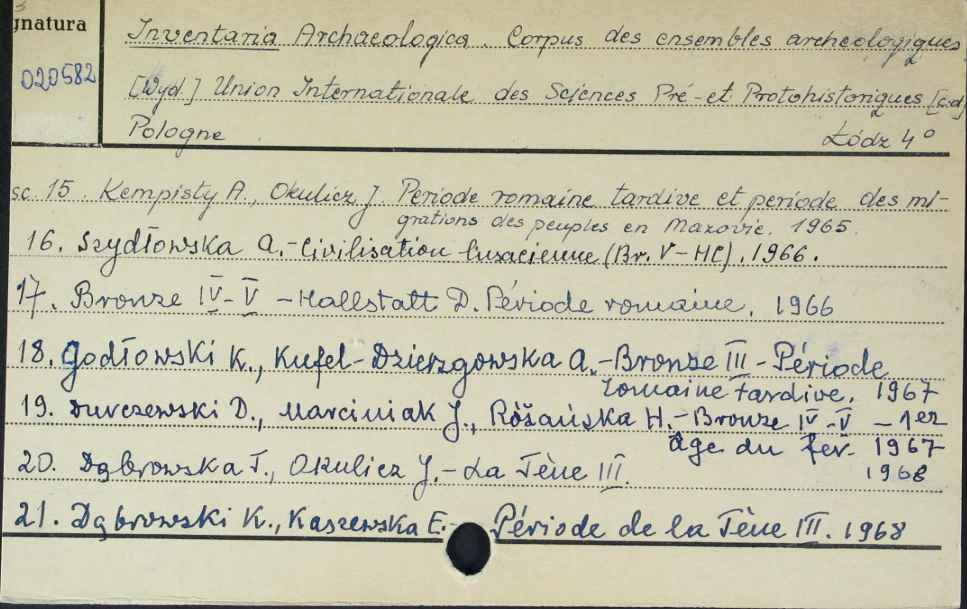 gnatura
020582
Inventaria Archaeologica. Corpus des ensembles archéologiques
[Wyd.] Union Internationale des Sciences Pré-et Protohistoriques [c.d]
Pologne Łódz 4°
sc. 15. Kempisty A., Okulicz J. Periode romaine tardive et periode des mi-
grations des peuples en Mazovie. 1965.
16. Szydłowska A.- Civilisation lusacienne (Br. V-HC). 1966.
17. Bronze IV-V - Hallstatt D. Période romaine. 1966
18. Godłowski K., Kufel-Dzierzgowska A.-Bronze III - Période
romaine tardive. 1967
19. Durczewski D., Marciniak J., Różańska H.-Bronze IV-V - 1er
âge du fer. 1967
20. Dąbrowska T., Okulicz J.- La Tène III. 1968
21. Dąbrowski K., Kaszewska E.- Période de la Tène III. 1968